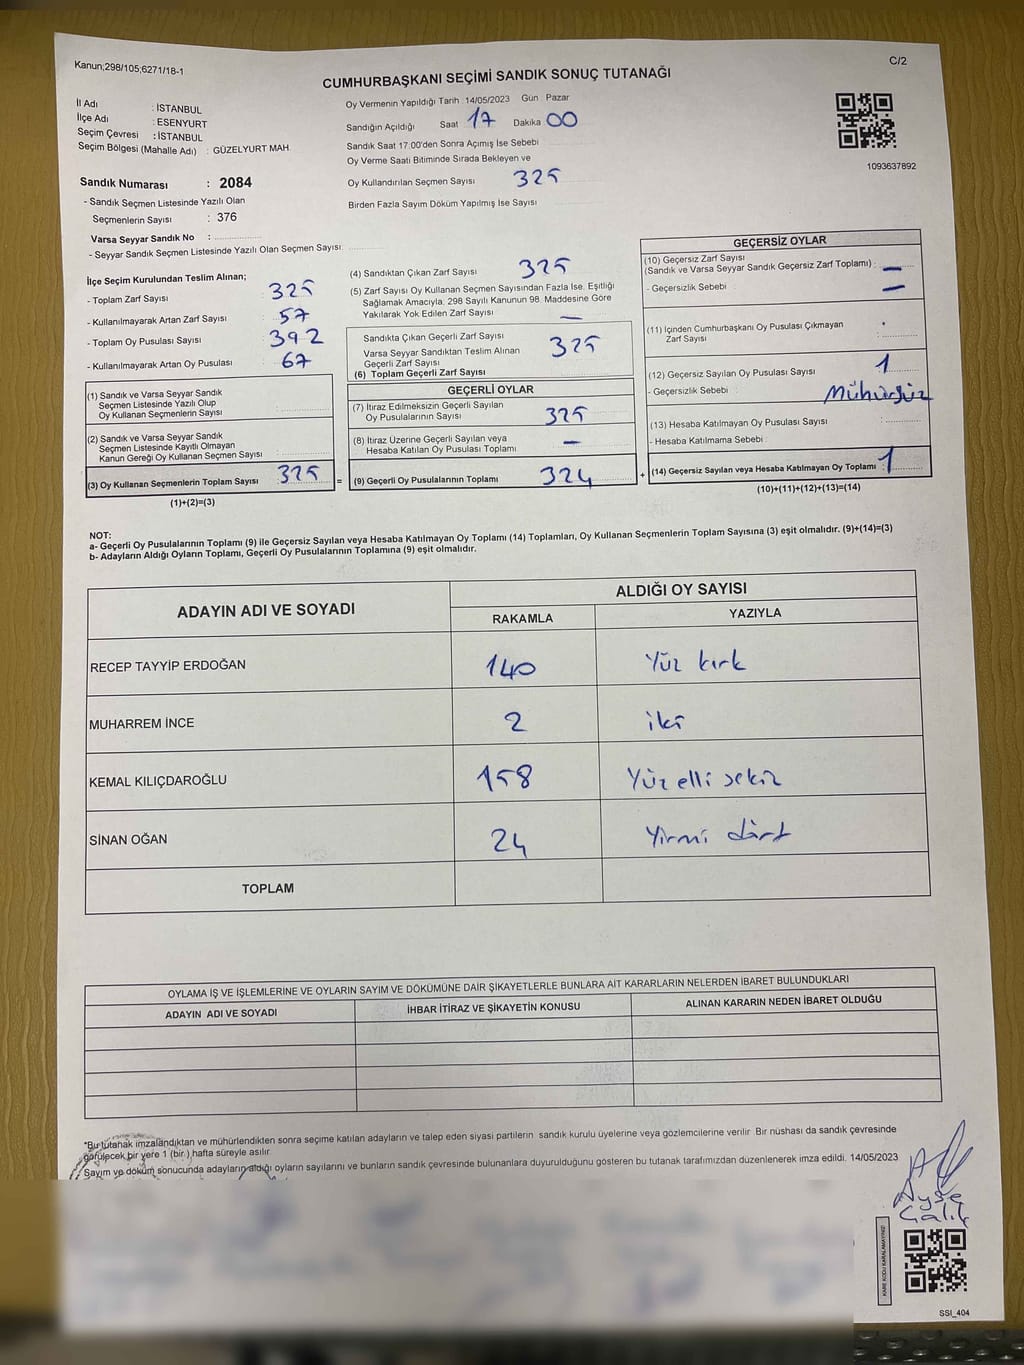 Kanun;298/105;6271/18-1
C/2
CUMHURBAŞKANI SEÇİMİ SANDIK SONUÇ TUTANAĞI
İl Adı : İSTANBUL
İlçe Adı : ESENYURT
Seçim Çevresi : İSTANBUL
Seçim Bölgesi (Mahalle Adı) : GÜZELYURT MAH.
Oy Vermenin Yapıldığı Tarih : 14/05/2023 Gün : Pazar
Sandığın Açıldığı Saat 17 Dakika 00
Sandık Saat 17:00'den Sonra Açımış İse Sebebi
Oy Verme Saati Bitiminde Sırada Bekleyen ve
Oy Kullandırılan Seçmen Sayısı 325
Birden Fazla Sayım Döküm Yapılmış İse Sayısı
1093637892
Sandık Numarası : 2084
- Sandık Seçmen Listesinde Yazılı Olan
Seçmenlerin Sayısı : 376
Varsa Seyyar Sandık No :
- Seyyar Sandık Seçmen Listesinde Yazılı Olan Seçmen Sayısı:
İlçe Seçim Kurulundan Teslim Alınan;
- Toplam Zarf Sayısı : 325
- Kullanılmayarak Artan Zarf Sayısı : 57
- Toplam Oy Pusulası Sayısı : 392
- Kullanılmayarak Artan Oy Pusulası : 67
(1) Sandık ve Varsa Seyyar Sandık
Seçmen Listesinde Yazılı Olup
Oy Kullanan Seçmenlerin Sayısı :
(2) Sandık ve Varsa Seyyar Sandık
Seçmen Listesinde Kayıtlı Olmayan
Kanun Gereği Oy Kullanan Seçmen Sayısı :
(3) Oy Kullanan Seçmenlerin Toplam Sayısı : 325
(1)+(2)=(3)
(4) Sandıktan Çıkan Zarf Sayısı 325
(5) Zarf Sayısı Oy Kullanan Seçmen Sayısından Fazla İse, Eşitliği
Sağlamak Amacıyla, 298 Sayılı Kanunun 98. Maddesine Göre
Yakılarak Yok Edilen Zarf Sayısı —
Sandıkta Çıkan Geçerli Zarf Sayısı
Varsa Seyyar Sandıktan Teslim Alınan
Geçerli Zarf Sayısı
(6) Toplam Geçerli Zarf Sayısı 325
GEÇERLİ OYLAR
(7) İtiraz Edilmeksizin Geçerli Sayılan
Oy Pusulalarının Sayısı 325
(8) İtiraz Üzerine Geçerli Sayılan veya
Hesaba Katılan Oy Pusulası Toplamı —
= (9) Geçerli Oy Pusulalarının Toplamı 324
GEÇERSİZ OYLAR
(10) Geçersiz Zarf Sayısı
(Sandık ve Varsa Seyyar Sandık Geçersiz Zarf Toplamı) : —
- Geçersizlik Sebebi : —
(11) İçinden Cumhurbaşkanı Oy Pusulası Çıkmayan
Zarf Sayısı
(12) Geçersiz Sayılan Oy Pusulası Sayısı : 1
- Geçersizlik Sebebi : Mühürsüz
(13) Hesaba Katılmayan Oy Pusulası Sayısı :
- Hesaba Katılmama Sebebi :
+ (14) Geçersiz Sayılan veya Hesaba Katılmayan Oy Toplamı : 1
(10)+(11)+(12)+(13)=(14)
NOT:
a- Geçerli Oy Pusulalarının Toplamı (9) ile Geçersiz Sayılan veya Hesaba Katılmayan Oy Toplamı (14) Toplamları, Oy Kullanan Seçmenlerin Toplam Sayısına (3) eşit olmalıdır. (9)+(14)=(3)
b- Adayların Aldığı Oyların Toplamı, Geçerli Oy Pusulalarının Toplamına (9) eşit olmalıdır.
ADAYIN ADI VE SOYADI
ALDIĞI OY SAYISI
RAKAMLA YAZIYLA
RECEP TAYYİP ERDOĞAN 140 Yüz kırk
MUHARREM İNCE 2 iki
KEMAL KILIÇDAROĞLU 158 Yüz elli sekiz
SİNAN OĞAN 24 Yirmi dört
TOPLAM
OYLAMA İŞ VE İŞLEMLERİNE VE OYLARIN SAYIM VE DÖKÜMÜNE DAİR ŞİKAYETLERLE BUNLARA AİT KARARLARIN NELERDEN İBARET BULUNDUKLARI
ADAYIN ADI VE SOYADI İHBAR İTİRAZ VE ŞİKAYETİN KONUSU ALINAN KARARIN NEDEN İBARET OLDUĞU
*Bu tutanak imzalandıktan ve mühürlendikten sonra seçime katılan adayların ve talep eden siyasi partilerin sandık kurulu üyelerine veya gözlemcilerine verilir Bir nüshası da sandık çevresinde
görülecek bir yere 1 (bir ) hafta süreyle asılır
Sayım ve döküm sonucunda adayların aldığı oyların sayılarını ve bunların sandık çevresinde bulunanlara duyurulduğunu gösteren bu tutanak tarafımızdan düzenlenerek imza edildi. 14/05/2023
Ayşe
Çalık
KARE KODU KARALAMAYINIZ!
SSI_404